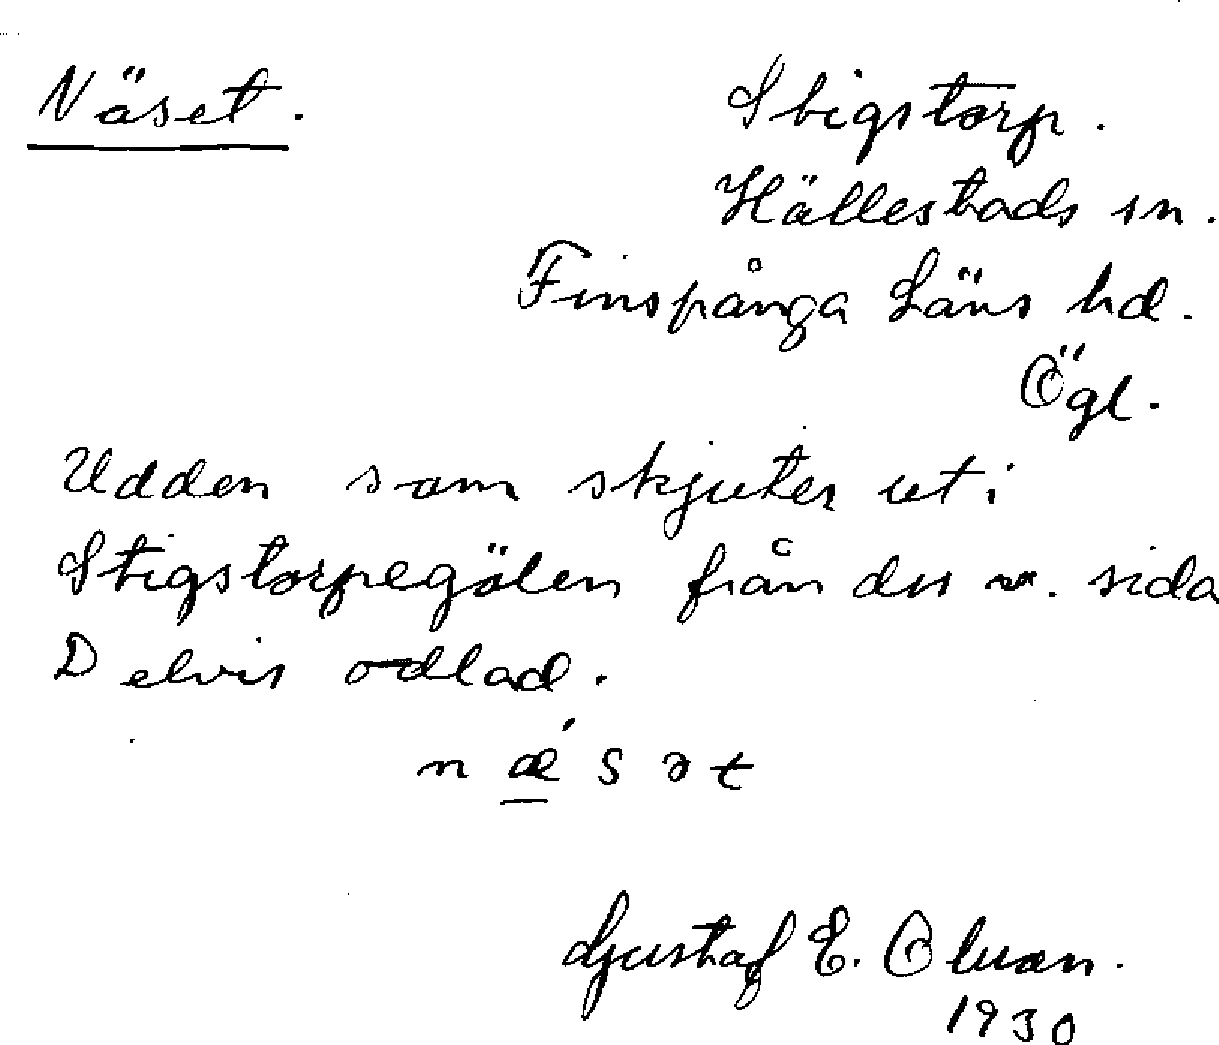 Näset.
Stigstorp.
Hällestads sn.
Finspånga Läns hd.
Ögl.
Udden som skjuter ut i
Stigstorpegölen från dess v. sida
Delvis odlad.
næ´sət
Gustaf E.
1930